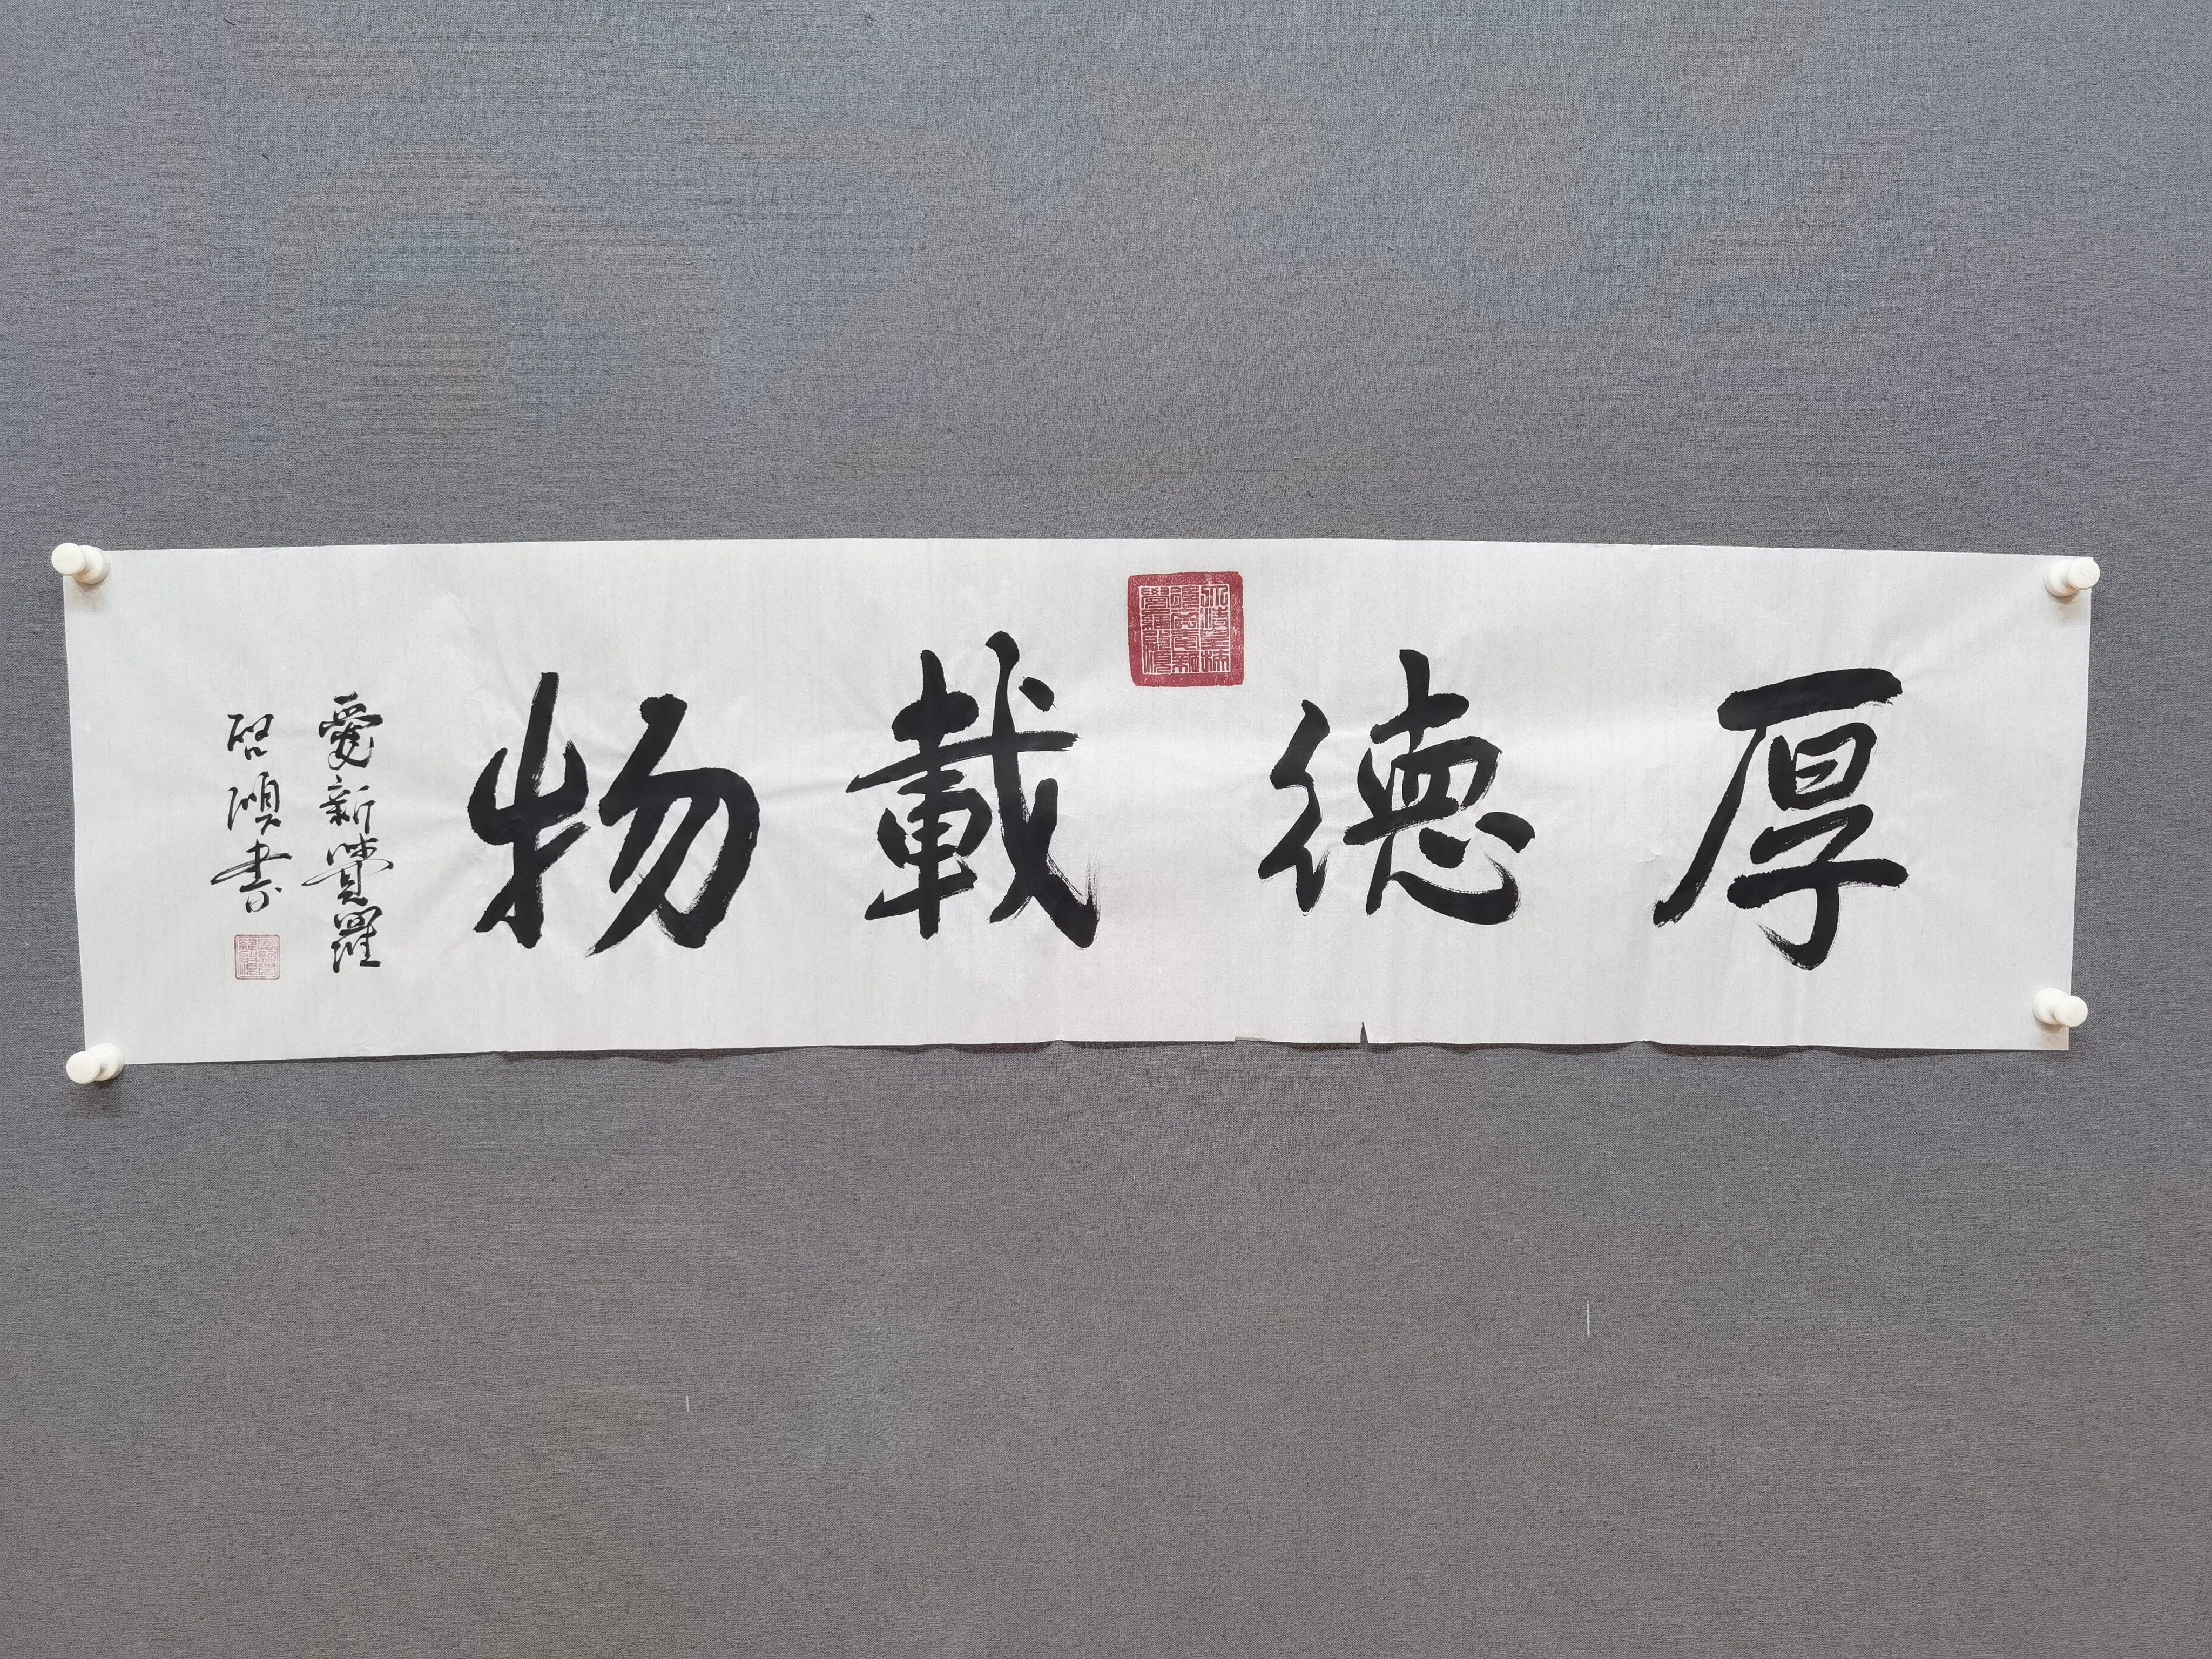 厚德載物
愛新覺羅
啓頌書